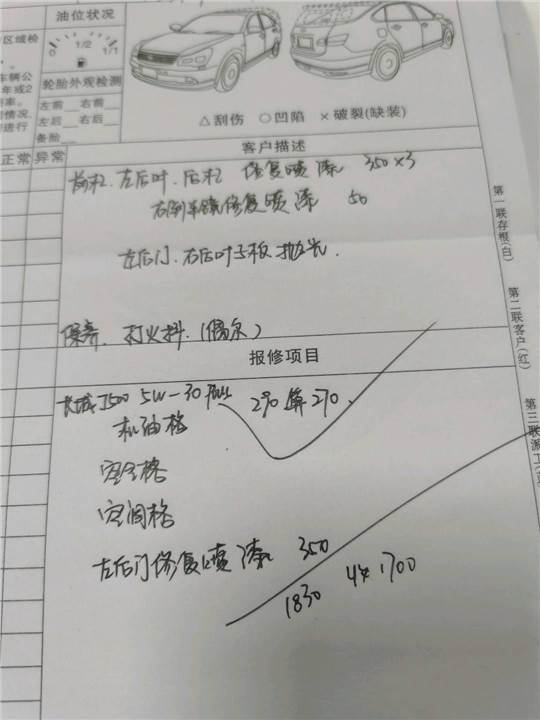 油位状况
区域检
1/2
1/1
车辆公
年或2
轮胎外观检测
情况,
进行
左前__右前__
左后__右后__
备胎__
△刮伤 ○凹陷 ×破裂(缺装)
正常 异常
客户描述
前杠.左后叶.后杠 修复喷漆 350×3
右倒车镜修复喷漆 50
左后门.右后叶子板抛光.
保养. 打火抖.(偶尔)
报修项目
长城J500 5W-30 270 算270.
机油格
空气格
空调格
左后门修复喷漆 350
1830 收1700
第一联存根(白)
第二联客户(红)
第三联派工